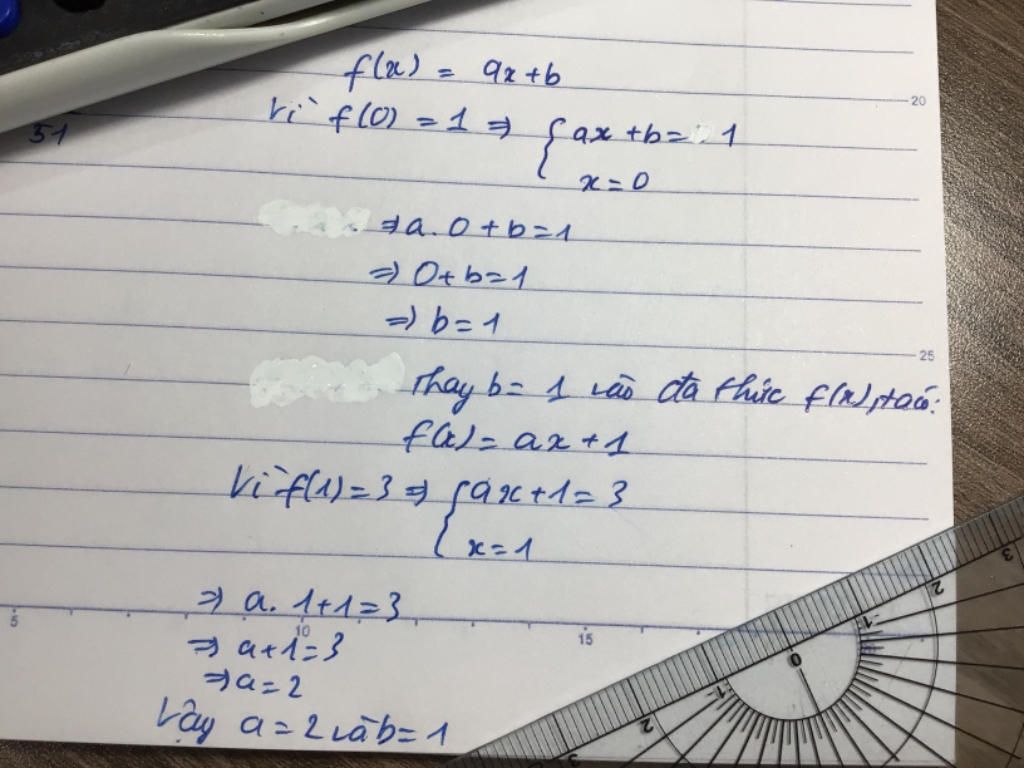 f(x) = ax+b
Vì f(0) = 1 ⇒ { ax + b = 1
51
x = 0
⇒ a. 0 + b = 1
⇒ 0 + b = 1
⇒ b = 1
Thay b = 1 vào đa thức f(x), ta có:
f(x) = ax + 1
Vì f(1) = 3 ⇒ { ax + 1 = 3
x = 1
⇒ a. 1 + 1 = 3
⇒ a + 1 = 3
⇒ a = 2
Vậy a = 2 và b = 1
20
25
5
10
15
3
2
1
0
1
2
3